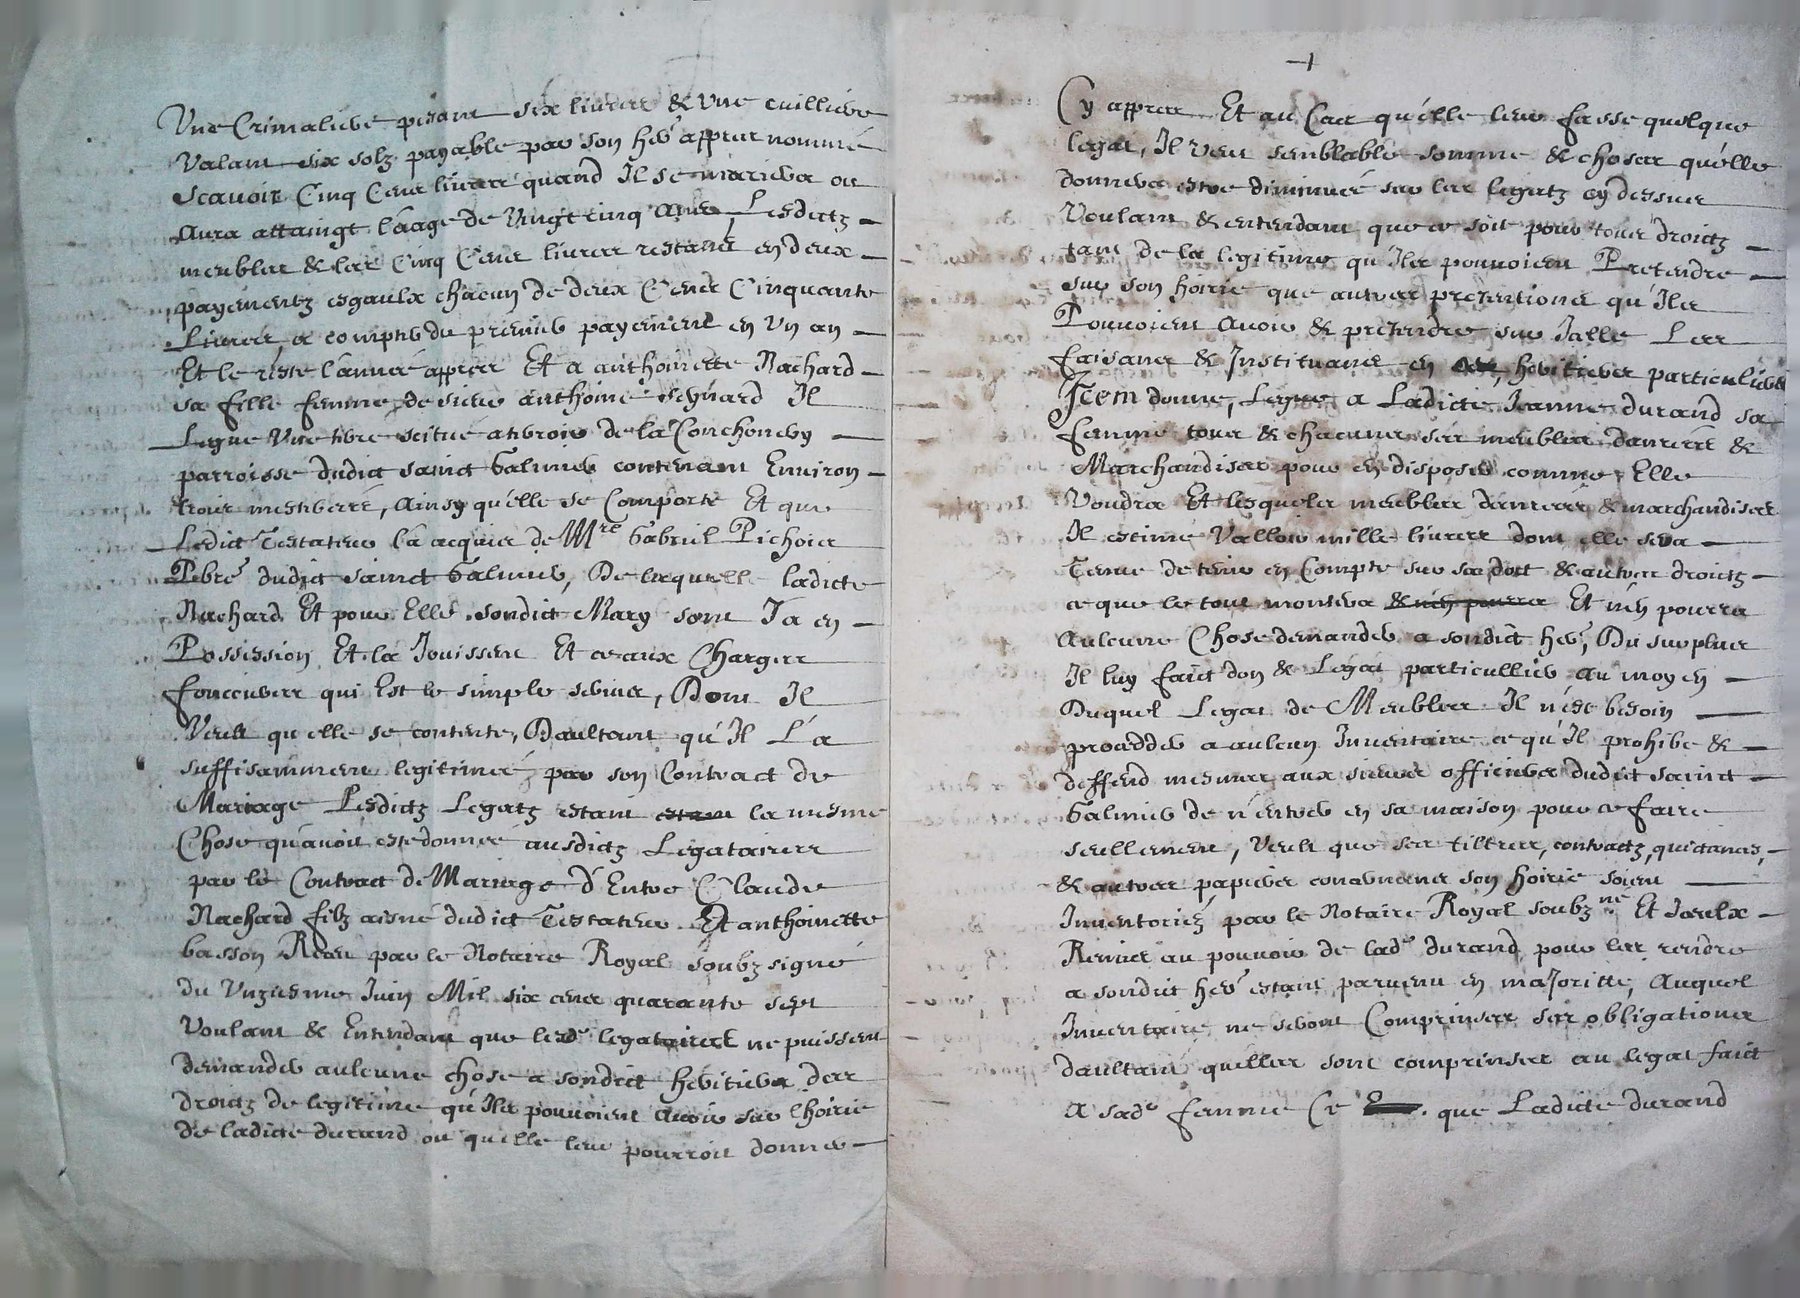 Une Crimaliere pesant six livres & une cuilliere
Valant six solz payable par son her. appres nommé
Scavoir Cinq Cens livres quand Il se mariera ou
Aura attaingt lâage de Vingt cinq ans, Lesdictz
meubles & les Cinq Cens livres restans en deux
payementz esgaulx chacun de deux Cens Cinquante
Livres, a compter du premier payement en Un an
Et le reste l'année appres Et a anthoinette Rachard
sa fille femme de sieur anthoine
Legue Une terre scitué au terroir de la Conchonery
parroisse dudict sainct Galmier contenant Environ
trois mestierés, Ainsy qu'elle se Comporte Et que
Ledict Testateur l'a acquise de Mre Gabriel Pichois
Pbre dudict sainct Galmier, De laquelle ladicte
Rachard Et pour Elle sondict Mary sont Ja en
Possession Et la Jouissent Et ce aux Charges
foncieres qui Est le simple servis, Dont Il
Veult qu'elle se contente, Daultant qu'Il L'a
suffisamment legitimée par son Contract de
Mariage Lesdictz Legatz estant estant la mesme
Chose qu'avoit este donnée ausdictz Legataires
par le Contract de Mariage d'Entre Claude
Rachard filz aisné dudict Testateur Et anthoinette
basson Receu par le Notaire Royal soubz signé
du Unziesme Juin Mil six cens quarante sept
Voulant & Entendant que lesd. legataires ne puissent
demander aulcune chose a sondict heritier des
droictz de legitime qu'Ils pouvoient avoir sur l'hoirie
de ladicte durand ou qu'elle leur pourroit donner
Cy appres Et au Cas qu'elle leur fasse quelque
legat, Il veut semblable somme & choses qu'elle
donnera estre diminueé sur les legatz cy dessus
Voulant & entendant que ce soit pour tous droictz
tant de la legitime qu'Ils pouvoient Pretendre
sur son hoirie que autres pretentions qu'Ils
Pouvoient Avoir & pretendre sur Icelle Les
faisant & Instituant en heritiers particuliers
Item donne, Legue a Ladicte Jeanne durand sa
femme tous & chacuns ses meubles danrées &
Marchandises pour en disposer comme Elle
Voudra Et lesquels meubles danrées & marchandises
Il estime Valloir mille livres dont elle sera
Tenue de tenir en Compte sur sa dot & autres droictz
ce que le tout montera & n'en pourra Et n'en pourra
Aulcune Chose demander a sondict her. Du surplus
Il luy faict don & Legat particullier Au moyen
Duquel Legat de Meubles Il n'est besoin
proceder a aulcun Inventaire ce qu'Il prohibe &
deffend mesmes aux sieurs officiers dudict sainct
Galmier de n'entrer en sa maison pour ce faire
seullement, Veult que ses tiltres, contractz, quictances,
& autres papiers concernans son hoirie soient
Inventoriez par le Notaire Royal soubz.né Et Iceulx
Remis au pouvoir de lade durand pour les rendre
a sondict her. estant parvenu en majoritte, Auquel
Inventaire ne seront Comprinses ses obligations
daultant qu'elles sont comprinses au legat faict
A sade femme Ce que Ladicte durand